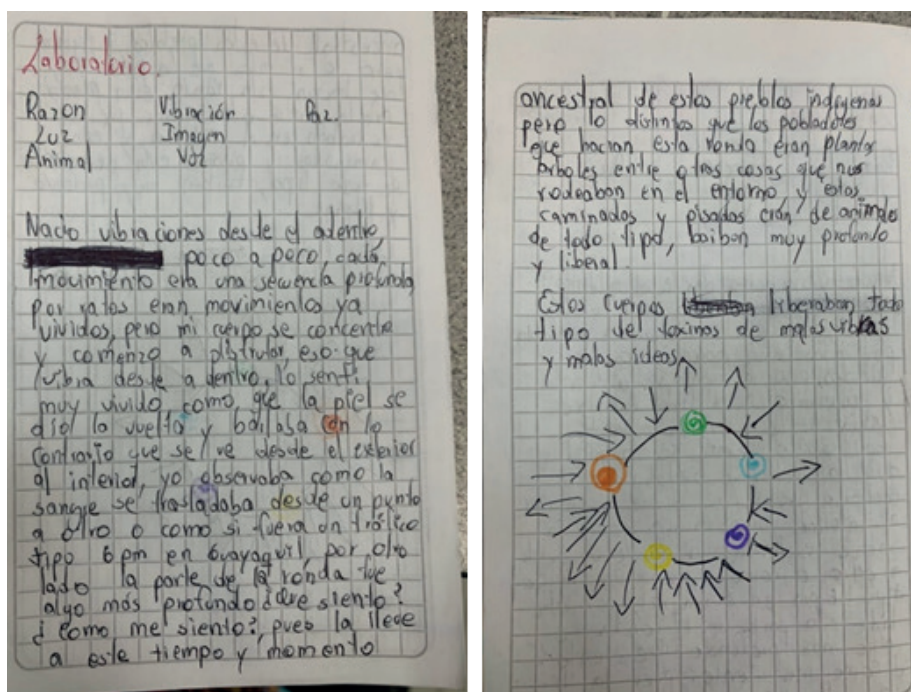 Laboratorio.
Razon Vibración Paz.
Luz Imagen
Animal Voz
Nacio vibraciones desde el adentro,
poco a poco, cada
movimiento era una secuencia profunda
por ratos eran movimientos ya
vividos, pero mi cuerpo se concentro
y comenzo a disfrutar, eso que
vibia desde a dentro, lo senti
muy vivido como, que la piel se
dio la vuelta y bailaba en lo
contrario que se ve desde el exterior
al interior, yo observaba como la
sangre se trasladaba desde un punto
a otro o como si fuera un trafico
tipo 6 pm en Guayaquil, por otro
lado la parte de la ronda fue
algo más profundo ¿que siento?
¿como me siento?, pues la lleve
a este tiempo y momento
ancestral de estos pueblos indigenas
pero lo distintos que los pobladores
que hacian esta ronda eran plantas
arboles entre otras cosas que nos
rodeaban en el entorno y estos
caminados y pisadas de animales
de todo tipo, muy profundo
y liberal.
Estos cuerpos liberaban todo
tipo de toxinas de malas vibras
y malas ideas